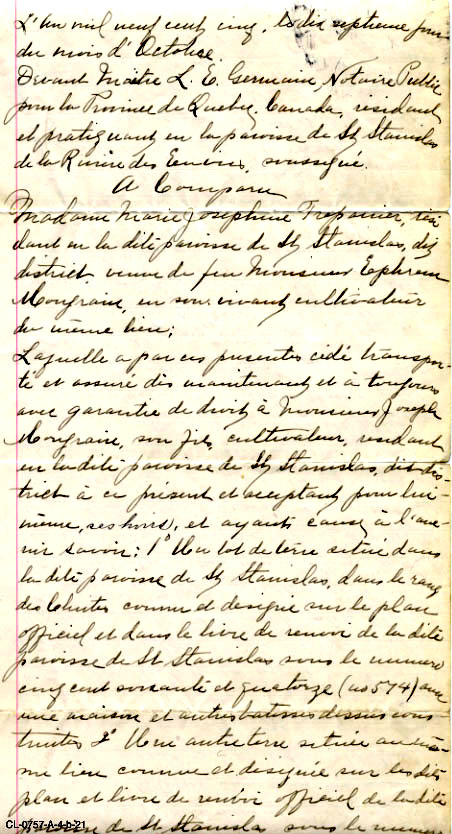 L'an mil neuf cent cinq, le dix septieme jour
du mois d'Octobre
Devant Maitre L. E. Germain, Notaire Public
pour la Province de Quebec, Canada, résidant
et pratiquant en la paroisse de St Stanislas
de la Rivière des Envies, soussigné.
A Comparu
Madame Marie Josephine Trepanier, rési
dant en la dite paroisse de St Stanislas, dit
district, veuve de feu Monsieur Ephrem
Mongrain, en son vivant cultivateur
du même lieu;
Laquelle a par ces presentes cédé transpor-
té et assuré dès maintenant et à toujours
avec garantie de droit à Monsieur Joseph
Mongrain, son fils, cultivateur, residant
en la dite paroisse de St Stanislas, dit dis-
trict à ce présent et acceptant pour lui-
même, ses hoirs, et ayants cause à l'ave-
nir savoir: 1° Un lot de terre située dans
la dite paroisse de St Stanislas, dans le rang
des Chutes connu et designé sur le plan
officiel et dans le livre de renvoi de la dite
paroisse de St. Stanislas sous le numero
cinq cent soixante et quatorze (no 574) avec
une maison et autres batisses dessus cons-
truites 2° Une autre terre située au mê-
me lieu connue et désignée sur les dits
plan et livre de renvoi officiel de la dite
de St Stanislas sous le numero
CL-0757-A-4-b-21